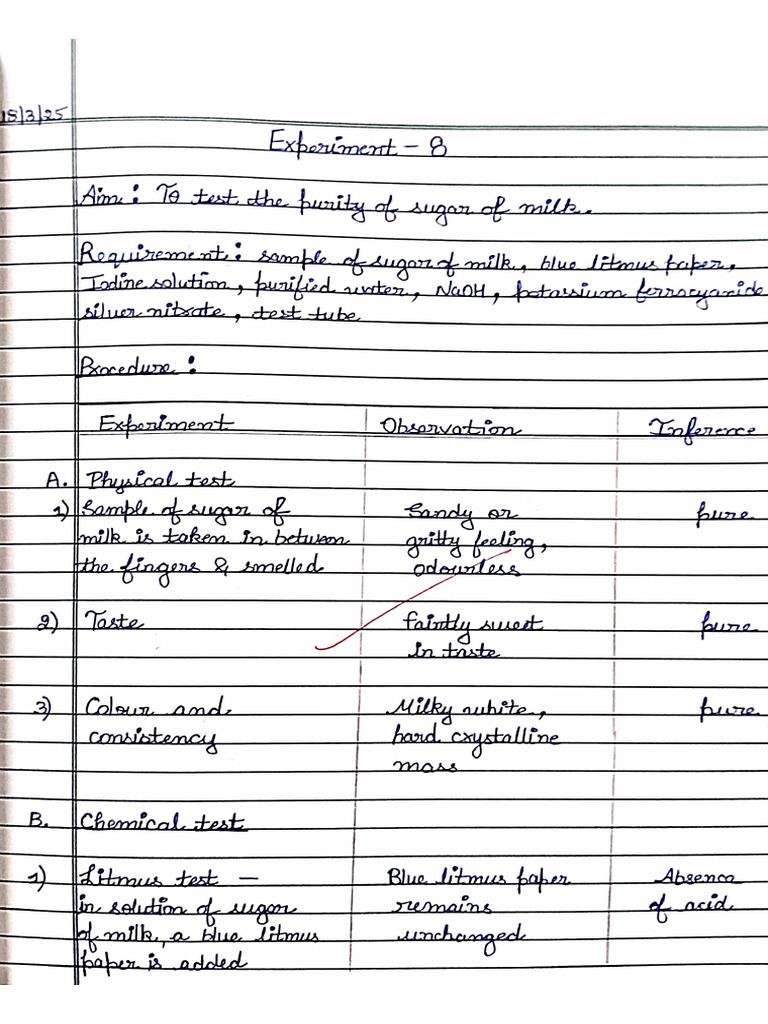 18/3/25
Experiment - 8
Aim : To test the purity of sugar of milk.
Requirement : sample of sugar of milk, blue litmus paper,
Iodine solution, purified water, NaOH, potassium ferrocyanide
silver nitrate, test tube
Procedure :
Experiment Observation Inference
A. Physical test
1) Sample of sugar of Sandy or pure
milk is taken in between gritty feeling,
the fingers & smelled odourless
2) Taste faintly sweet pure
in taste
3) Colour and Milky white, pure
consistency hard crystalline
mass
B. Chemical test
1) Litmus test — Blue litmus paper Absence
in solution of sugar remains of acid
of milk, a blue litmus unchanged
paper is added